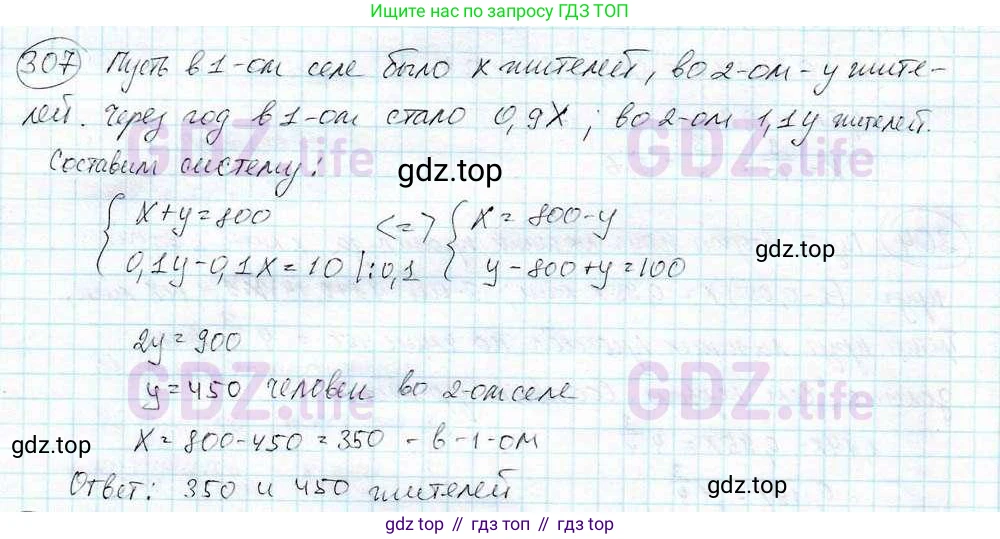 Ищите нас по запросу ГДЗ ТОП
307 Пусть в 1-ом селе было x жителей, во 2-ом - y жите-
лей. Через год в 1-ом стало 0,9x; во 2-ом 1,1y жителей.
GDZ.life GDZ.life
Составим систему:
gdz.top
{ x+y=800 <=> { x=800-y
gdz.top
0,1y-0,1x=10 |:0,1 y-800+y=100
2y=900
y=450 человек во 2-ом селе
GDZ.life GDZ.life
gdz.top
x=800-450=350 - в-1-ом
Ответ: 350 и 450 жителей
gdz.top
gdz.top // гдз топ // gdz.top